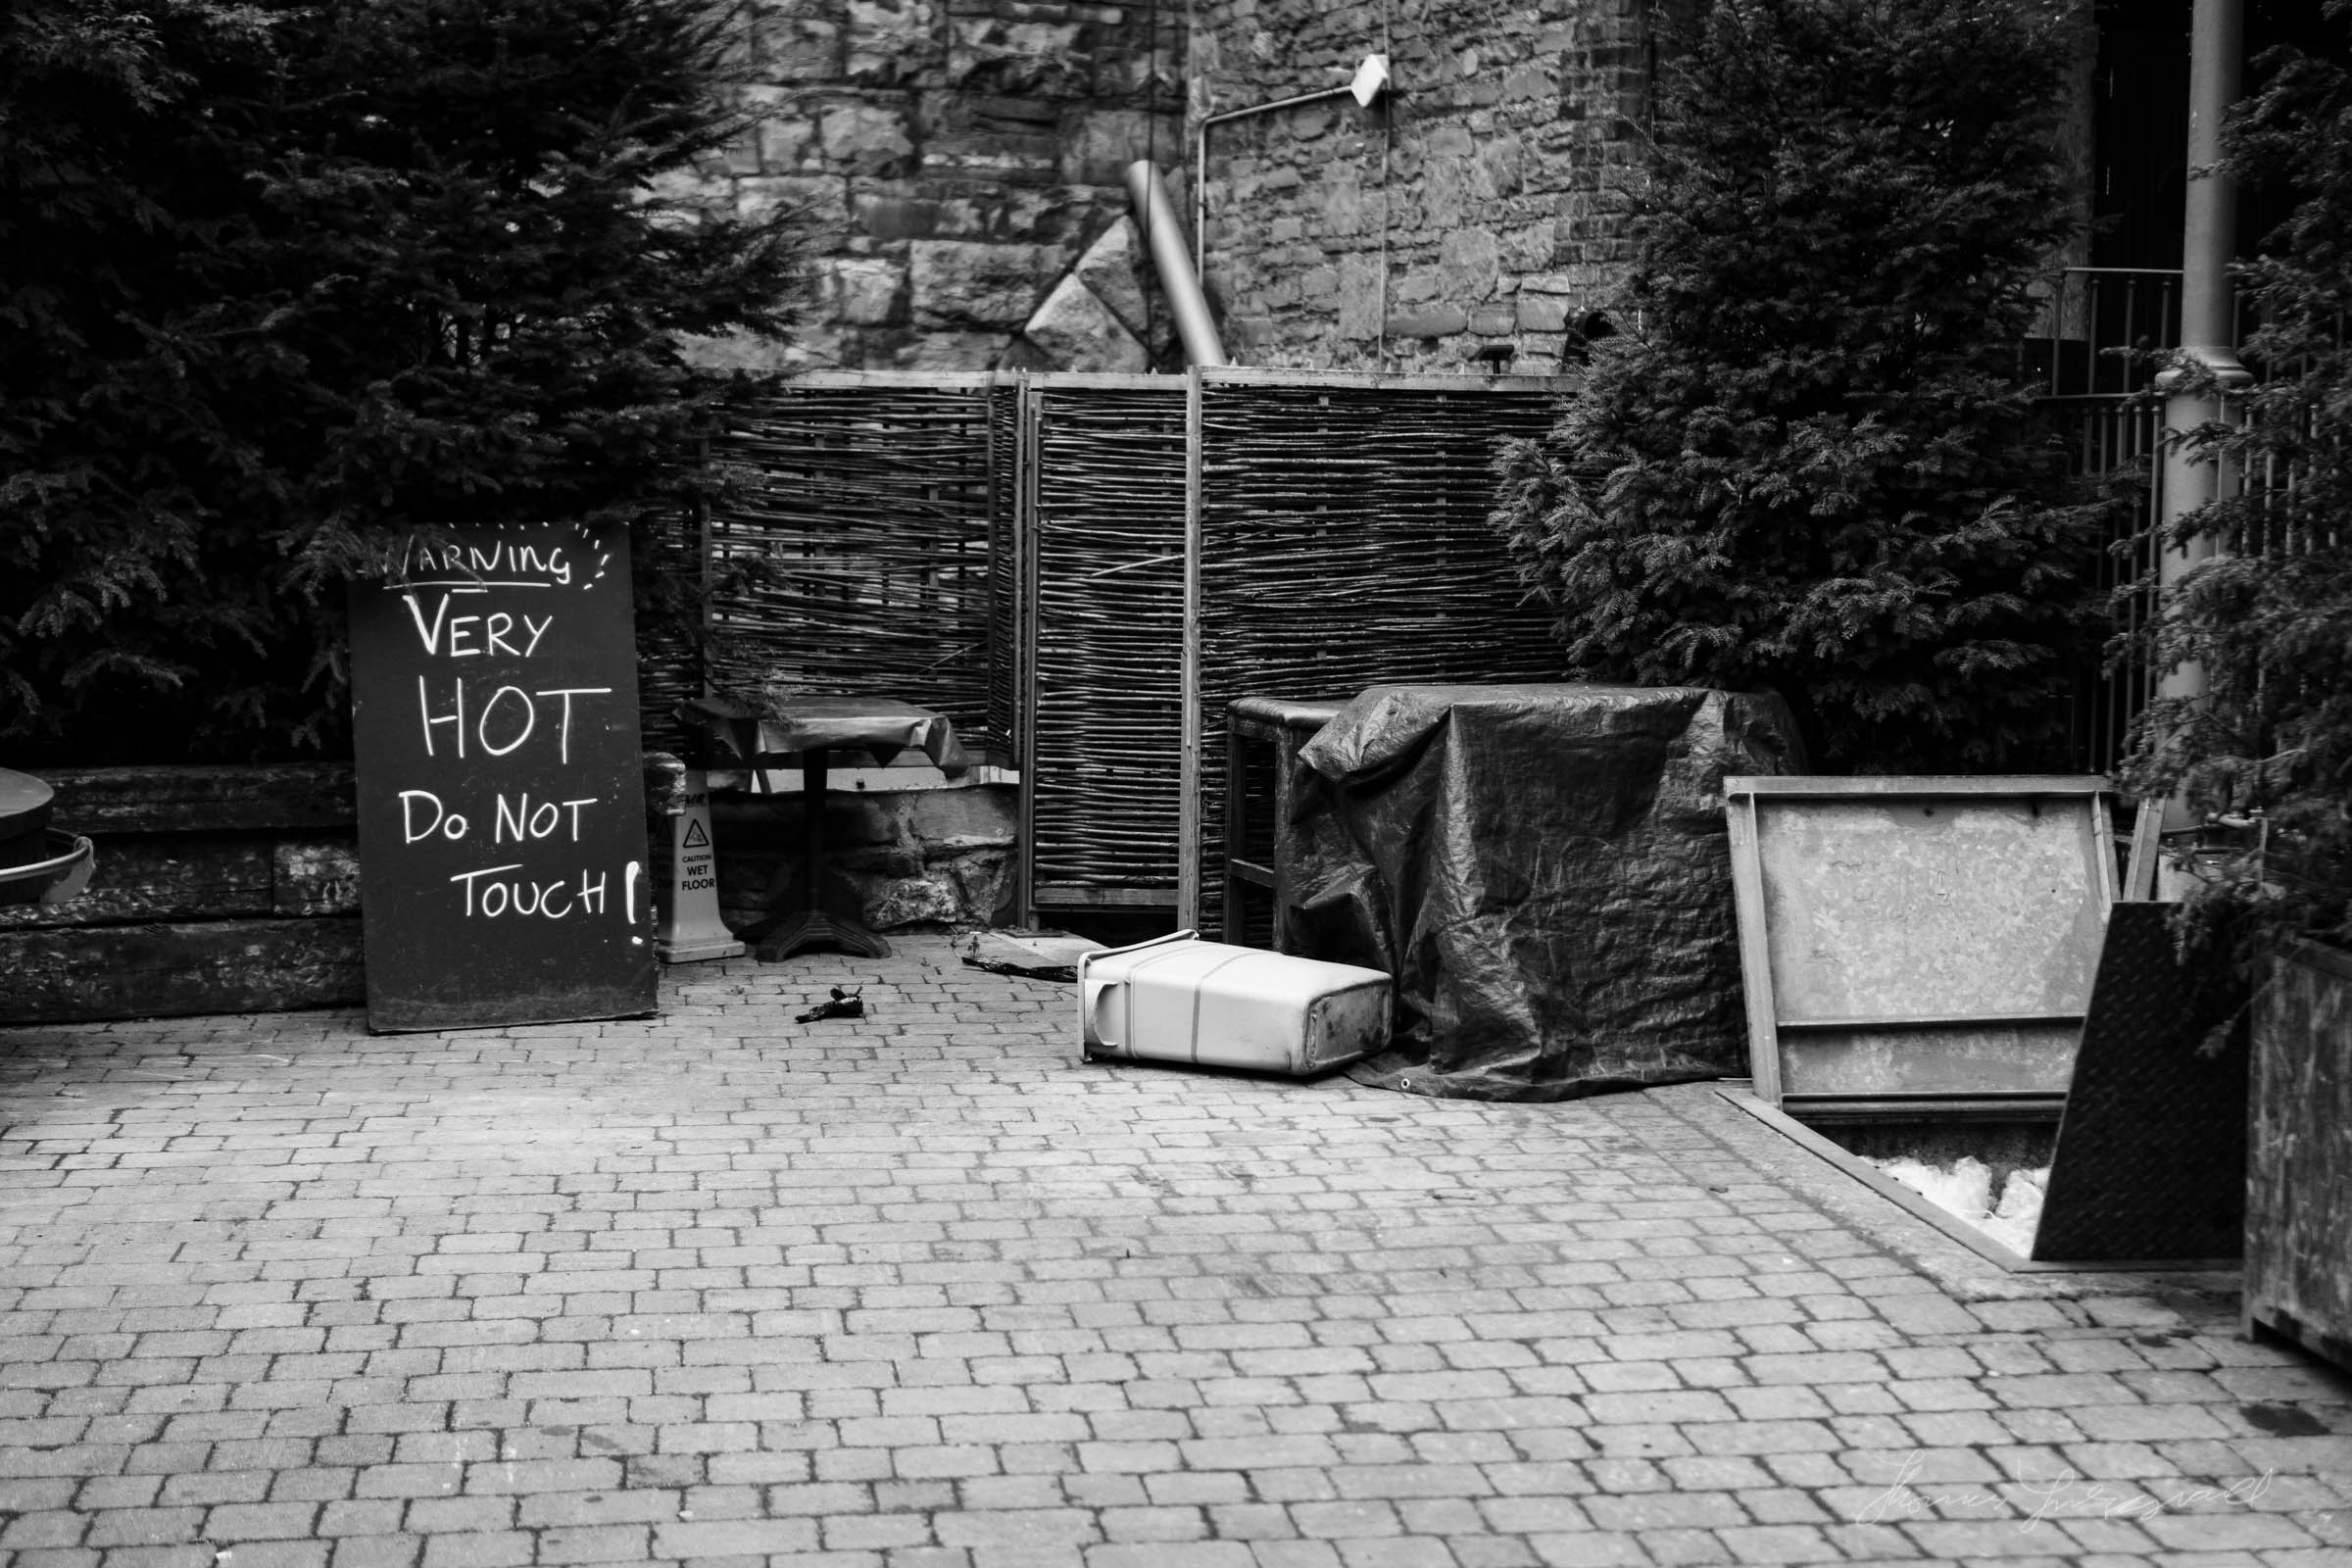 WARNING
VERY
HOT
Do NOT
TOUCH!
CAUTION
WET
FLOOR
Thomas Fitzgerald